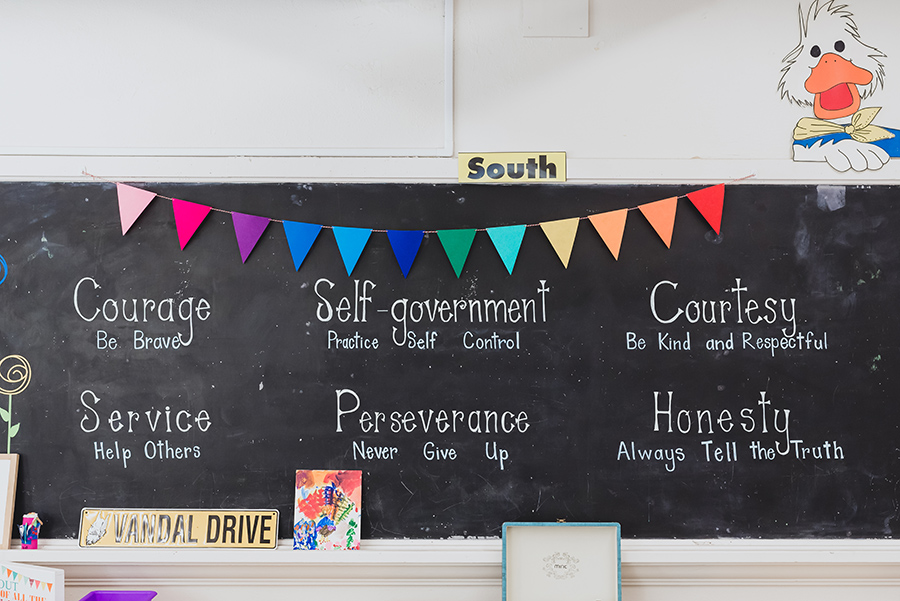 South
Courage
Be Brave
Self-government
Practice Self Control
Courtesy
Be Kind and Respectful
Service
Help Others
Perseverance
Never Give Up
Honesty
Always Tell the Truth
VANDAL DRIVE
OUT
OF ALL THE